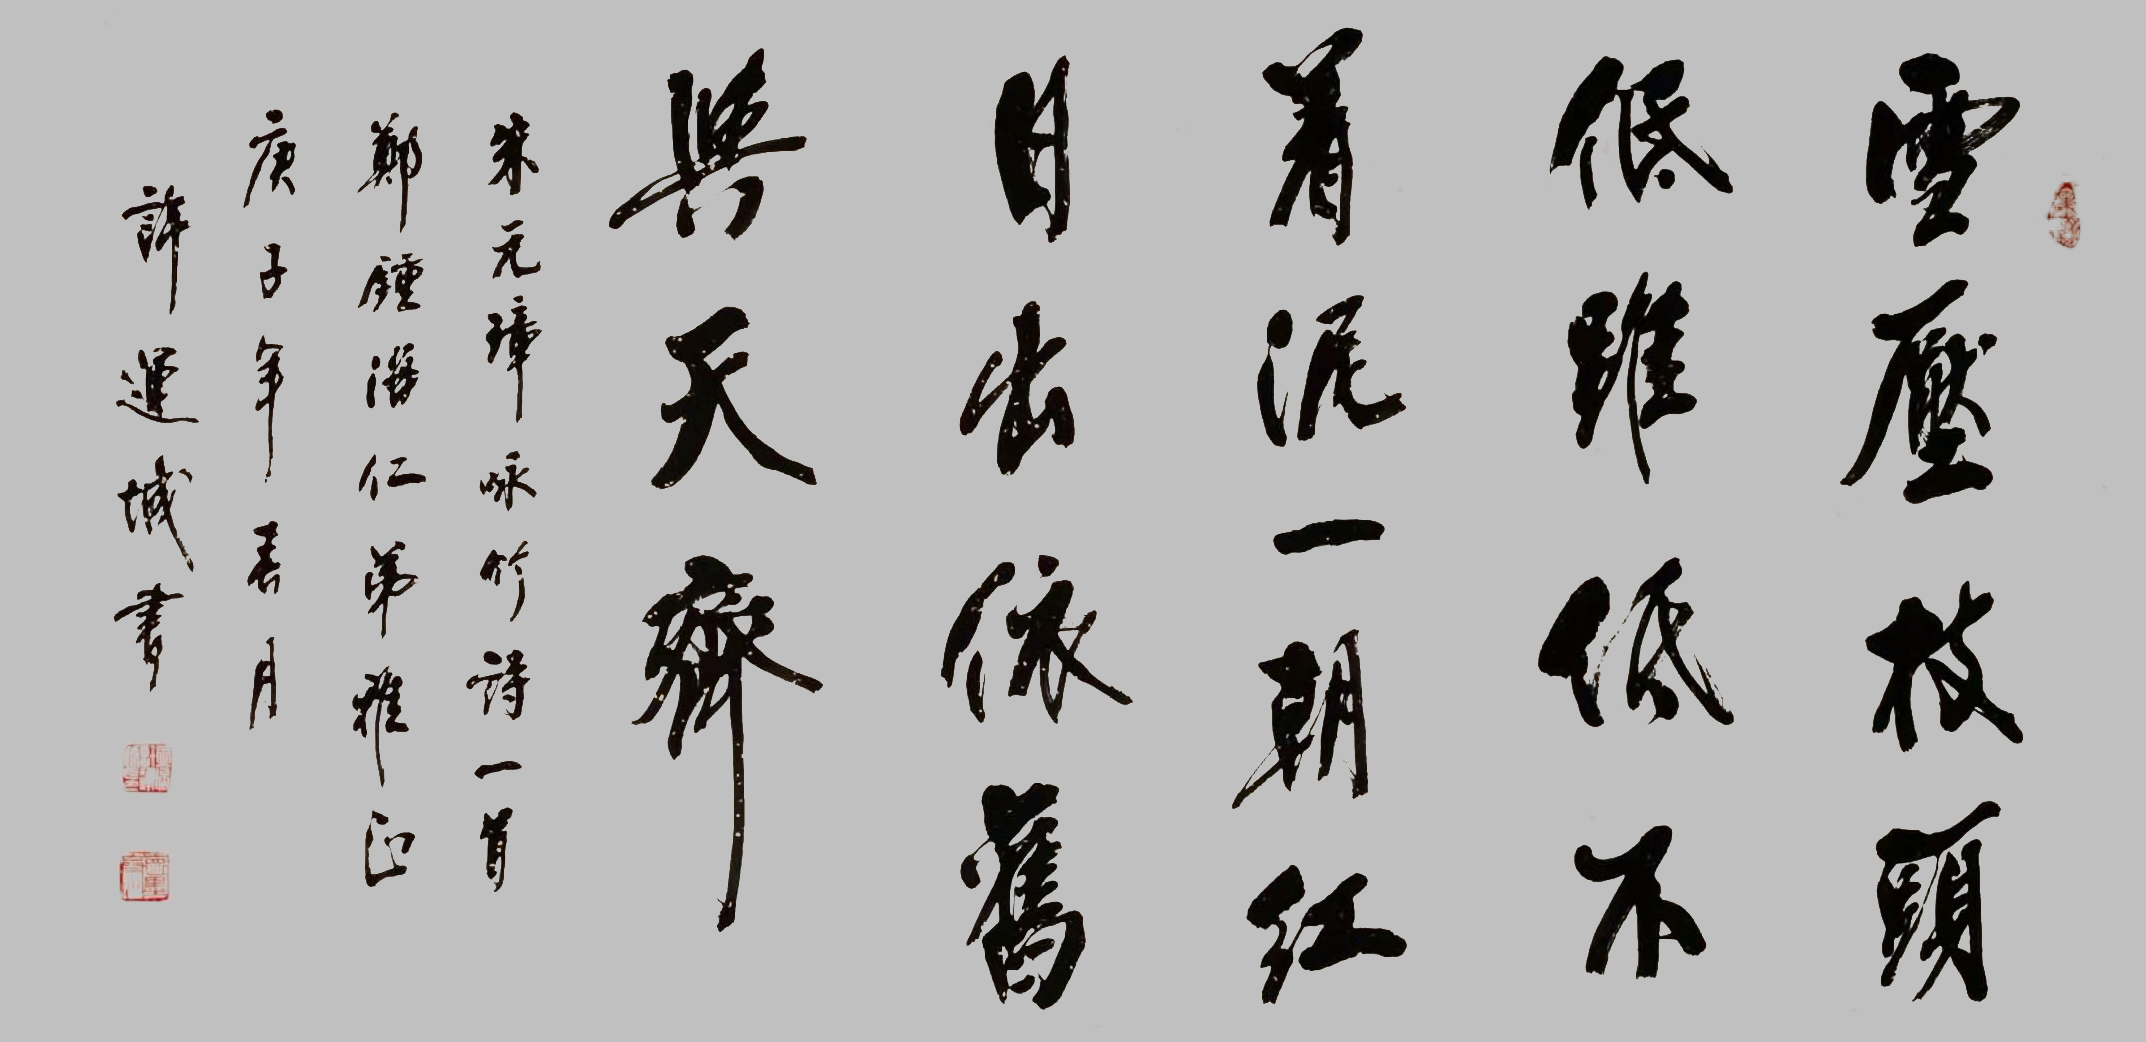 雪壓枝頭
低雖低不
着泥一朝紅
日出依舊
與天齊
朱元璋咏竹詩一首
鄭鍾潘仁弟雅正
庚子年春月
許運城書